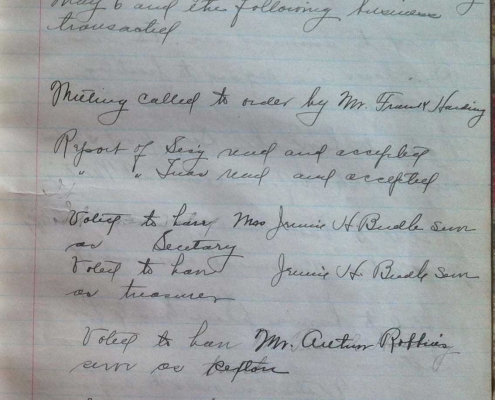 May 6 and the following business
transacted
Meeting called to order by Mr. Frank Harding
Report of Secy read and accepted
" " Treas read and accepted
Voted to have Miss Jennie H. Budle serve
as Secretary
Voted to have Jennie H. Budle serve
as treasurer
Voted to have Mr. Arthur Robbins
serve as